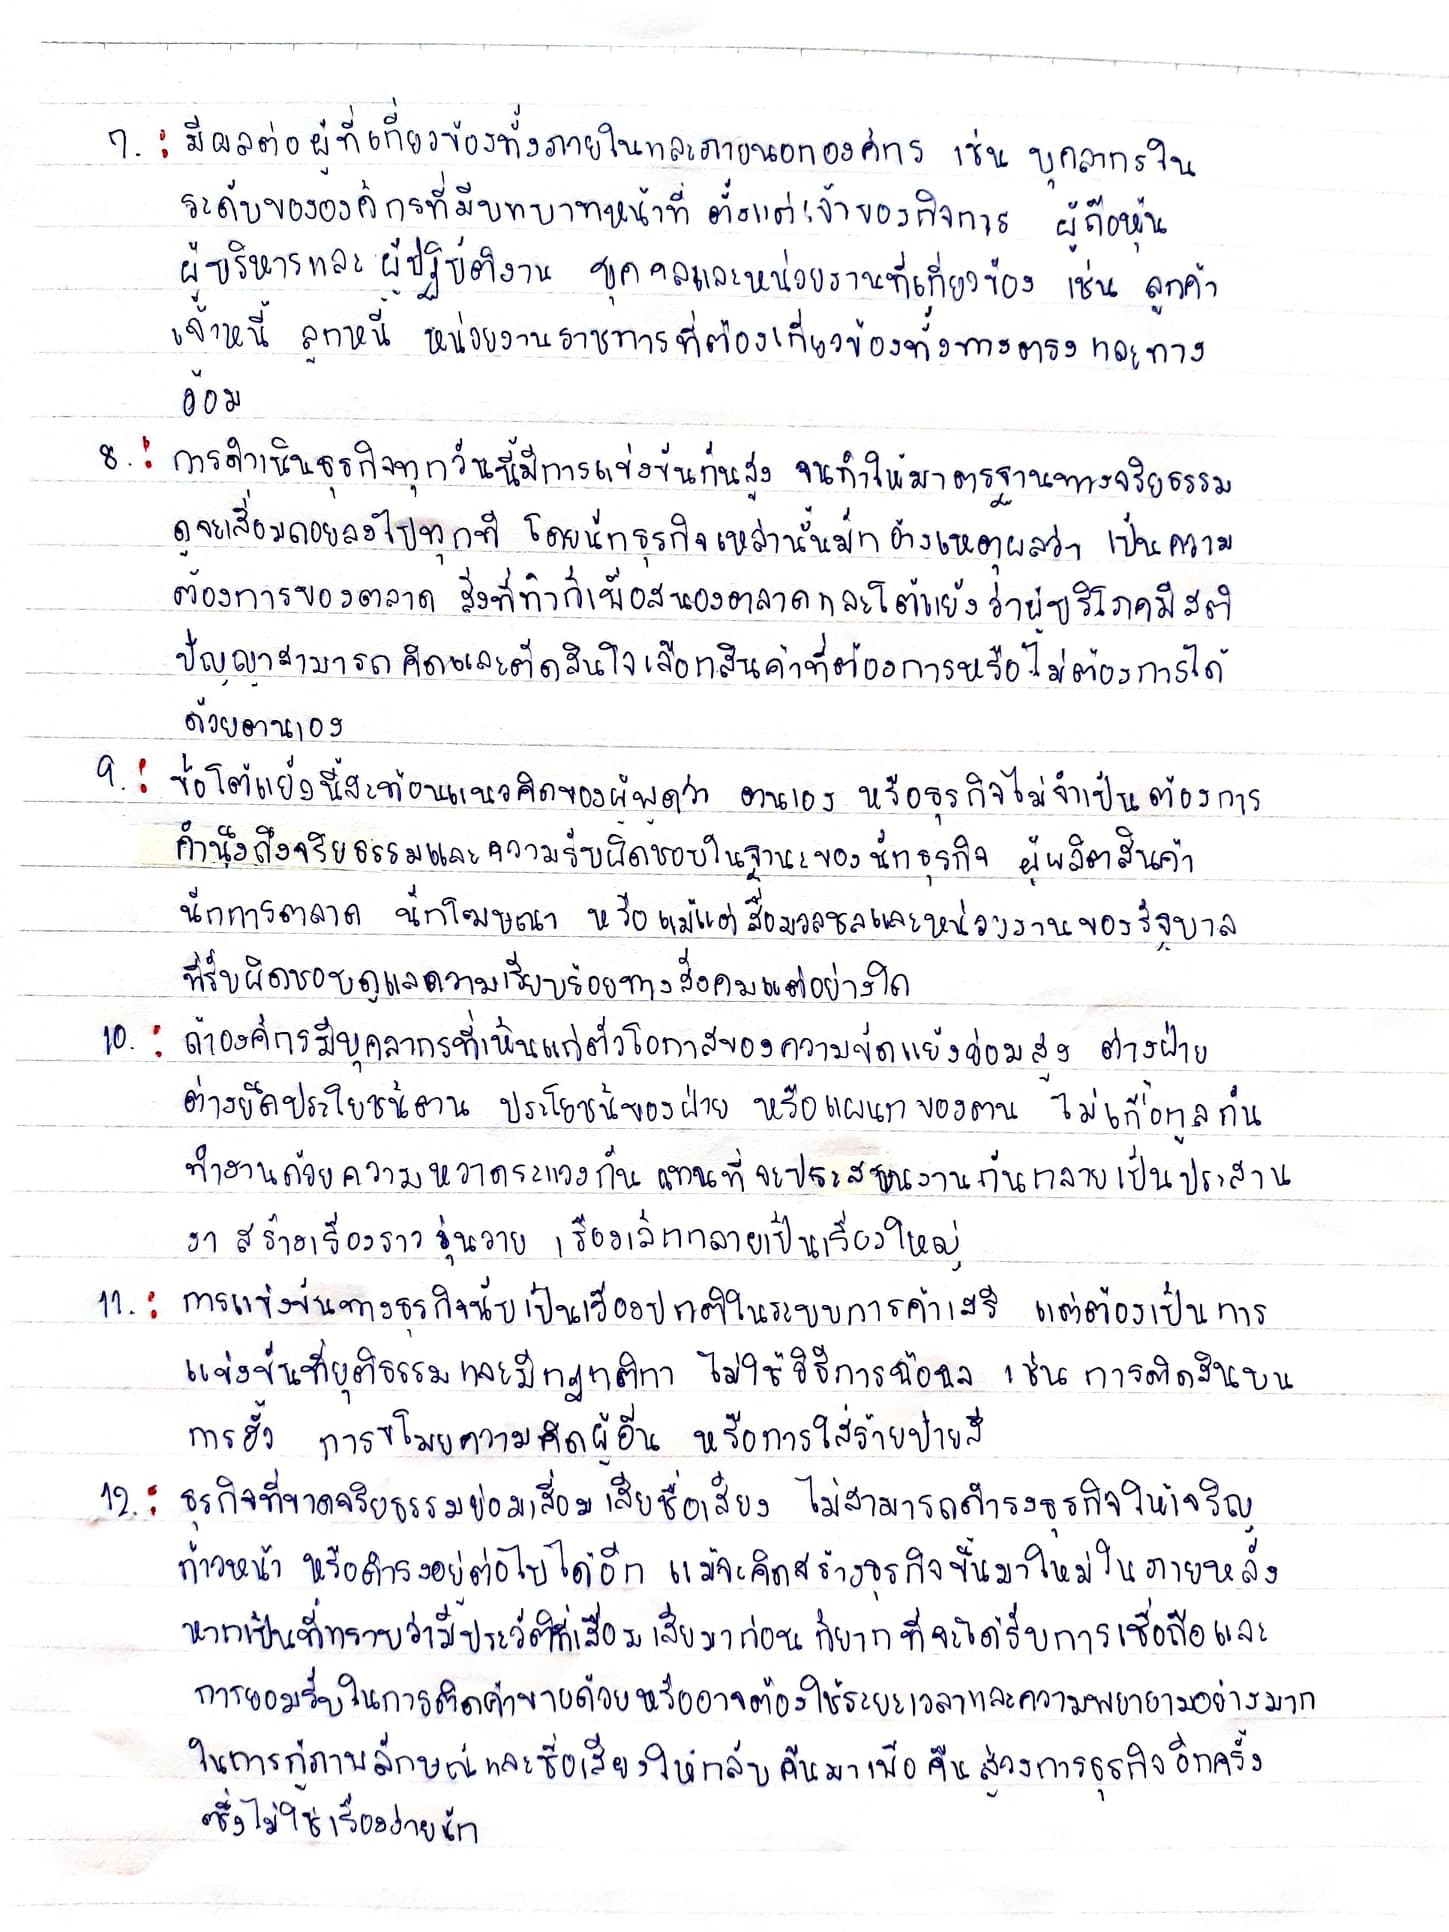 7. : มีผลต่อผู้ที่เกี่ยวข้องทั้งภายในและภายนอกองค์กร เช่น บุคลากรใน
ระดับขององค์กรที่มีบทบาทหน้าที่ ตั้งแต่เจ้าของกิจการ ผู้ถือหุ้น
ผู้บริหารและ ผู้ปฏิบัติงาน บุคคลและหน่วยงานที่เกี่ยวข้อง เช่น ลูกค้า
เจ้าหนี้ ลูกหนี้ หน่วยงานราชการที่ต้องเกี่ยวข้องทั้งทางตรง และทาง
อ้อม
8. : การดำเนินธุรกิจทุกวันนี้มีการแข่งขันกันสูง จนทำให้มาตรฐานทางจริยธรรม
ดูจะเสื่อมถอยลงไปทุกที โดยนักธุรกิจเหล่านั้นมักอ้างเหตุผลว่า เป็นความ
ต้องการของตลาด สิ่งที่ทำก็เพื่อสนองตลาดและโต้แย้งว่าผู้บริโภคมีสติ
ปัญญาสามารถคิดและตัดสินใจเลือกสินค้าที่ต้องการหรือไม่ต้องการได้
ด้วยต้านเอง
9. : ข้อโต้แย้งนี้สะท้อนแนวคิดของผู้พูดว่า ตนเอง หรือธุรกิจไม่จำเป็นต้องการ
คำนึงถึงจริยธรรมและความรับผิดชอบในฐานะของนักธุรกิจ ผู้ผลิตสินค้า
นักการตลาด นักโฆษณา หรือแม้แต่สื่อมวลชลและหน่วยงานของรัฐบาล
ที่รับผิดชอบดูแลความเรียบร้อยทางสังคมแต่อย่างใด
10. : ถ้าองค์กรมีบุคลากรที่เห็นแก่ตัวโอกาสของความขัดแย้งย่อมสูง ต่างฝ่าย
ต่างยึดประโยชน์ตน ประโยชน์ของฝ่าย หรือแผนกของตน ไม่เกื้อกูลกัน
ทำงานด้วยความหวาดระแวงกัน แทนที่จะประสานงานกันกลายเป็นประสาน
งา สร้างเรื่องราววุ่นวาย เรื่องเล็กกลายเป็นเรื่องใหญ่
11. : การแข่งขันทางธุรกิจนับเป็นเรื่องปกติในระบบการค้าเสรี แต่ต้องเป็นการ
แข่งขันที่ยุติธรรมและมีกฎกติกา ไม่ใช้วิธีการฉ้อฉล เช่น การติดสินบน
การฮั้ว การขโมยความคิดผู้อื่น หรือการใส่ร้ายป้ายสี
12. : ธุรกิจที่ขาดจริยธรรมย่อมเสื่อมเสียชื่อเสียง ไม่สามารถดำรงธุรกิจให้เจริญ
ก้าวหน้า หรือดำรงอยู่ต่อไปได้อีก แม้จะคิดสร้างธุรกิจขึ้นมาใหม่ในภายหลัง
หากเป็นที่ทราบว่ามีประวัติที่เสื่อมเสียมาก่อน ก็ยากที่จะได้รับการเชื่อถือและ
การยอมรับในการติดค้าขายด้วยหรืออาจต้องใช้ระยะเวลาและความพยายามอย่างมาก
ในการกู้ภาพลักษณ์และชื่อเสียงให้กลับคืนมาเพื่อคืนสู่วงการธุรกิจอีกครั้ง
ซึ่งไม่ใช่เรื่องง่ายนัก